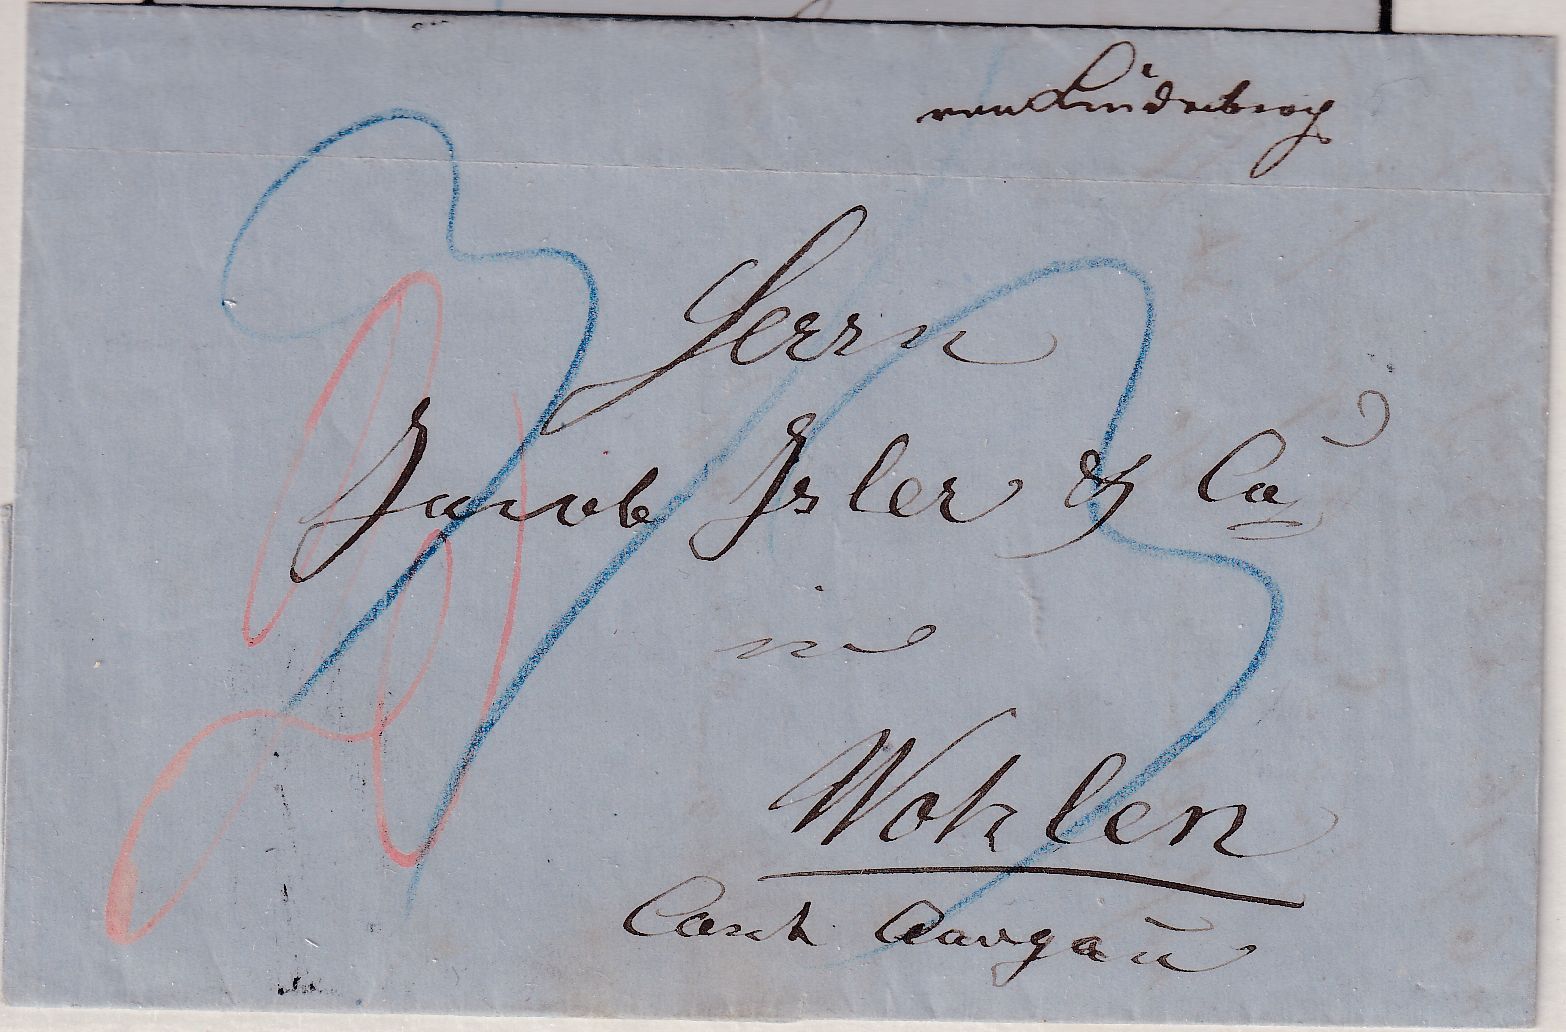 von Lindenberg
Herrn
Jacob Isler & Co
in
Wohlen
Cant. Aargau